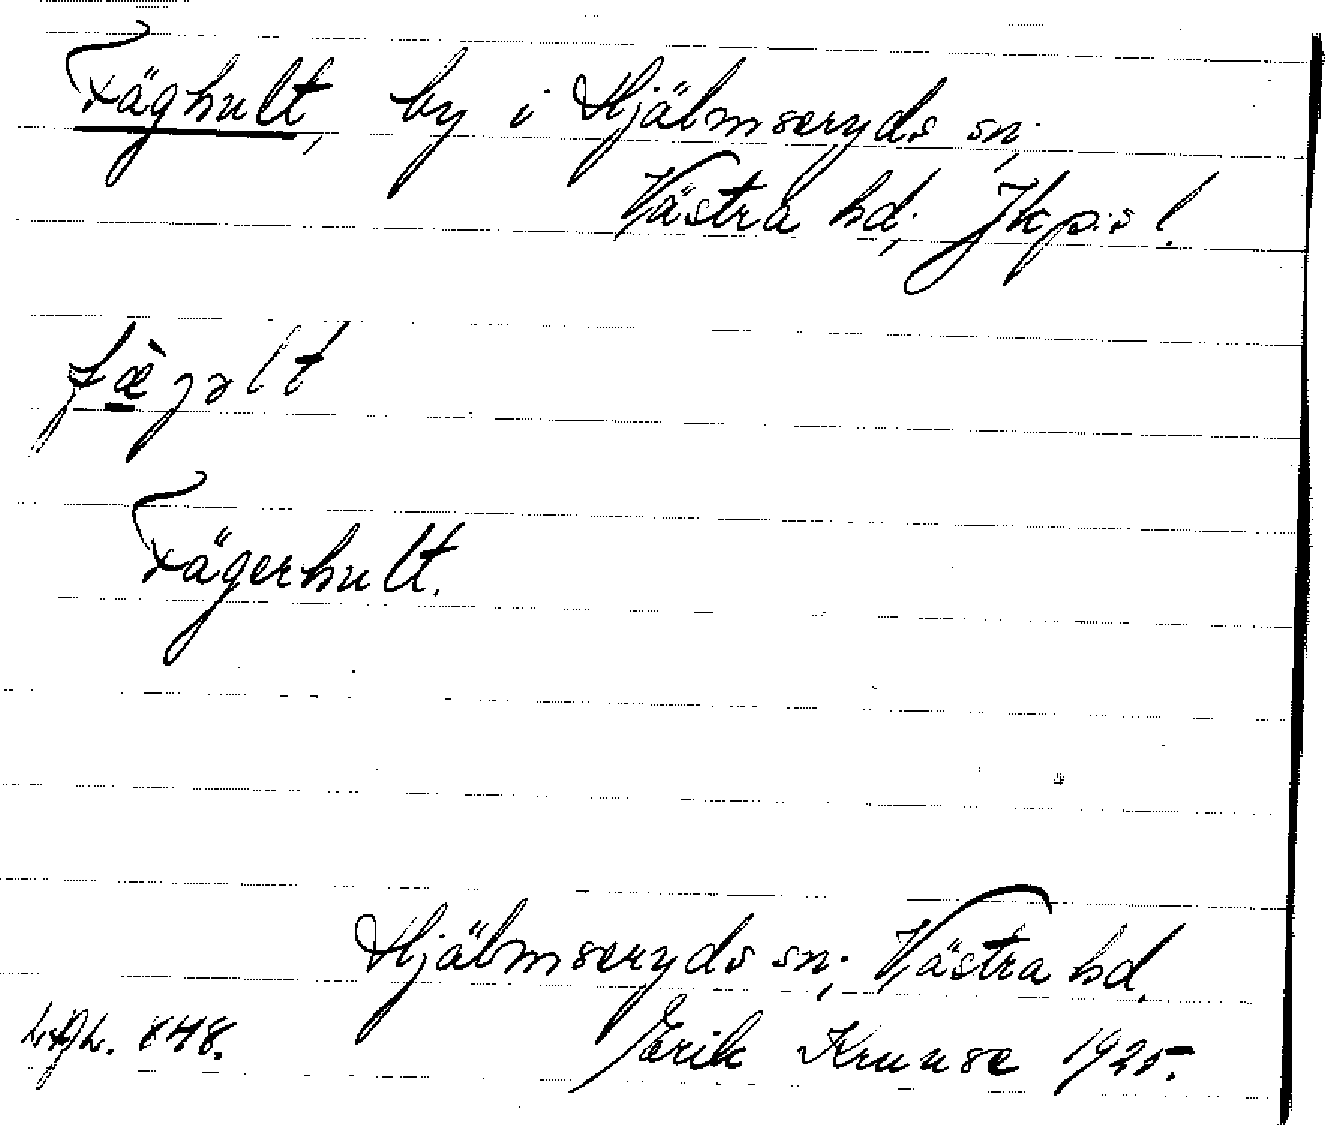 Fäghult, by i Hjälmseryds sn;
Västra hd; Jkp:s l.
fæ̀gəlt
Fägerhult.
Hjälmseryds sn; Västra hd.
848. Erik Kruuse 1925.